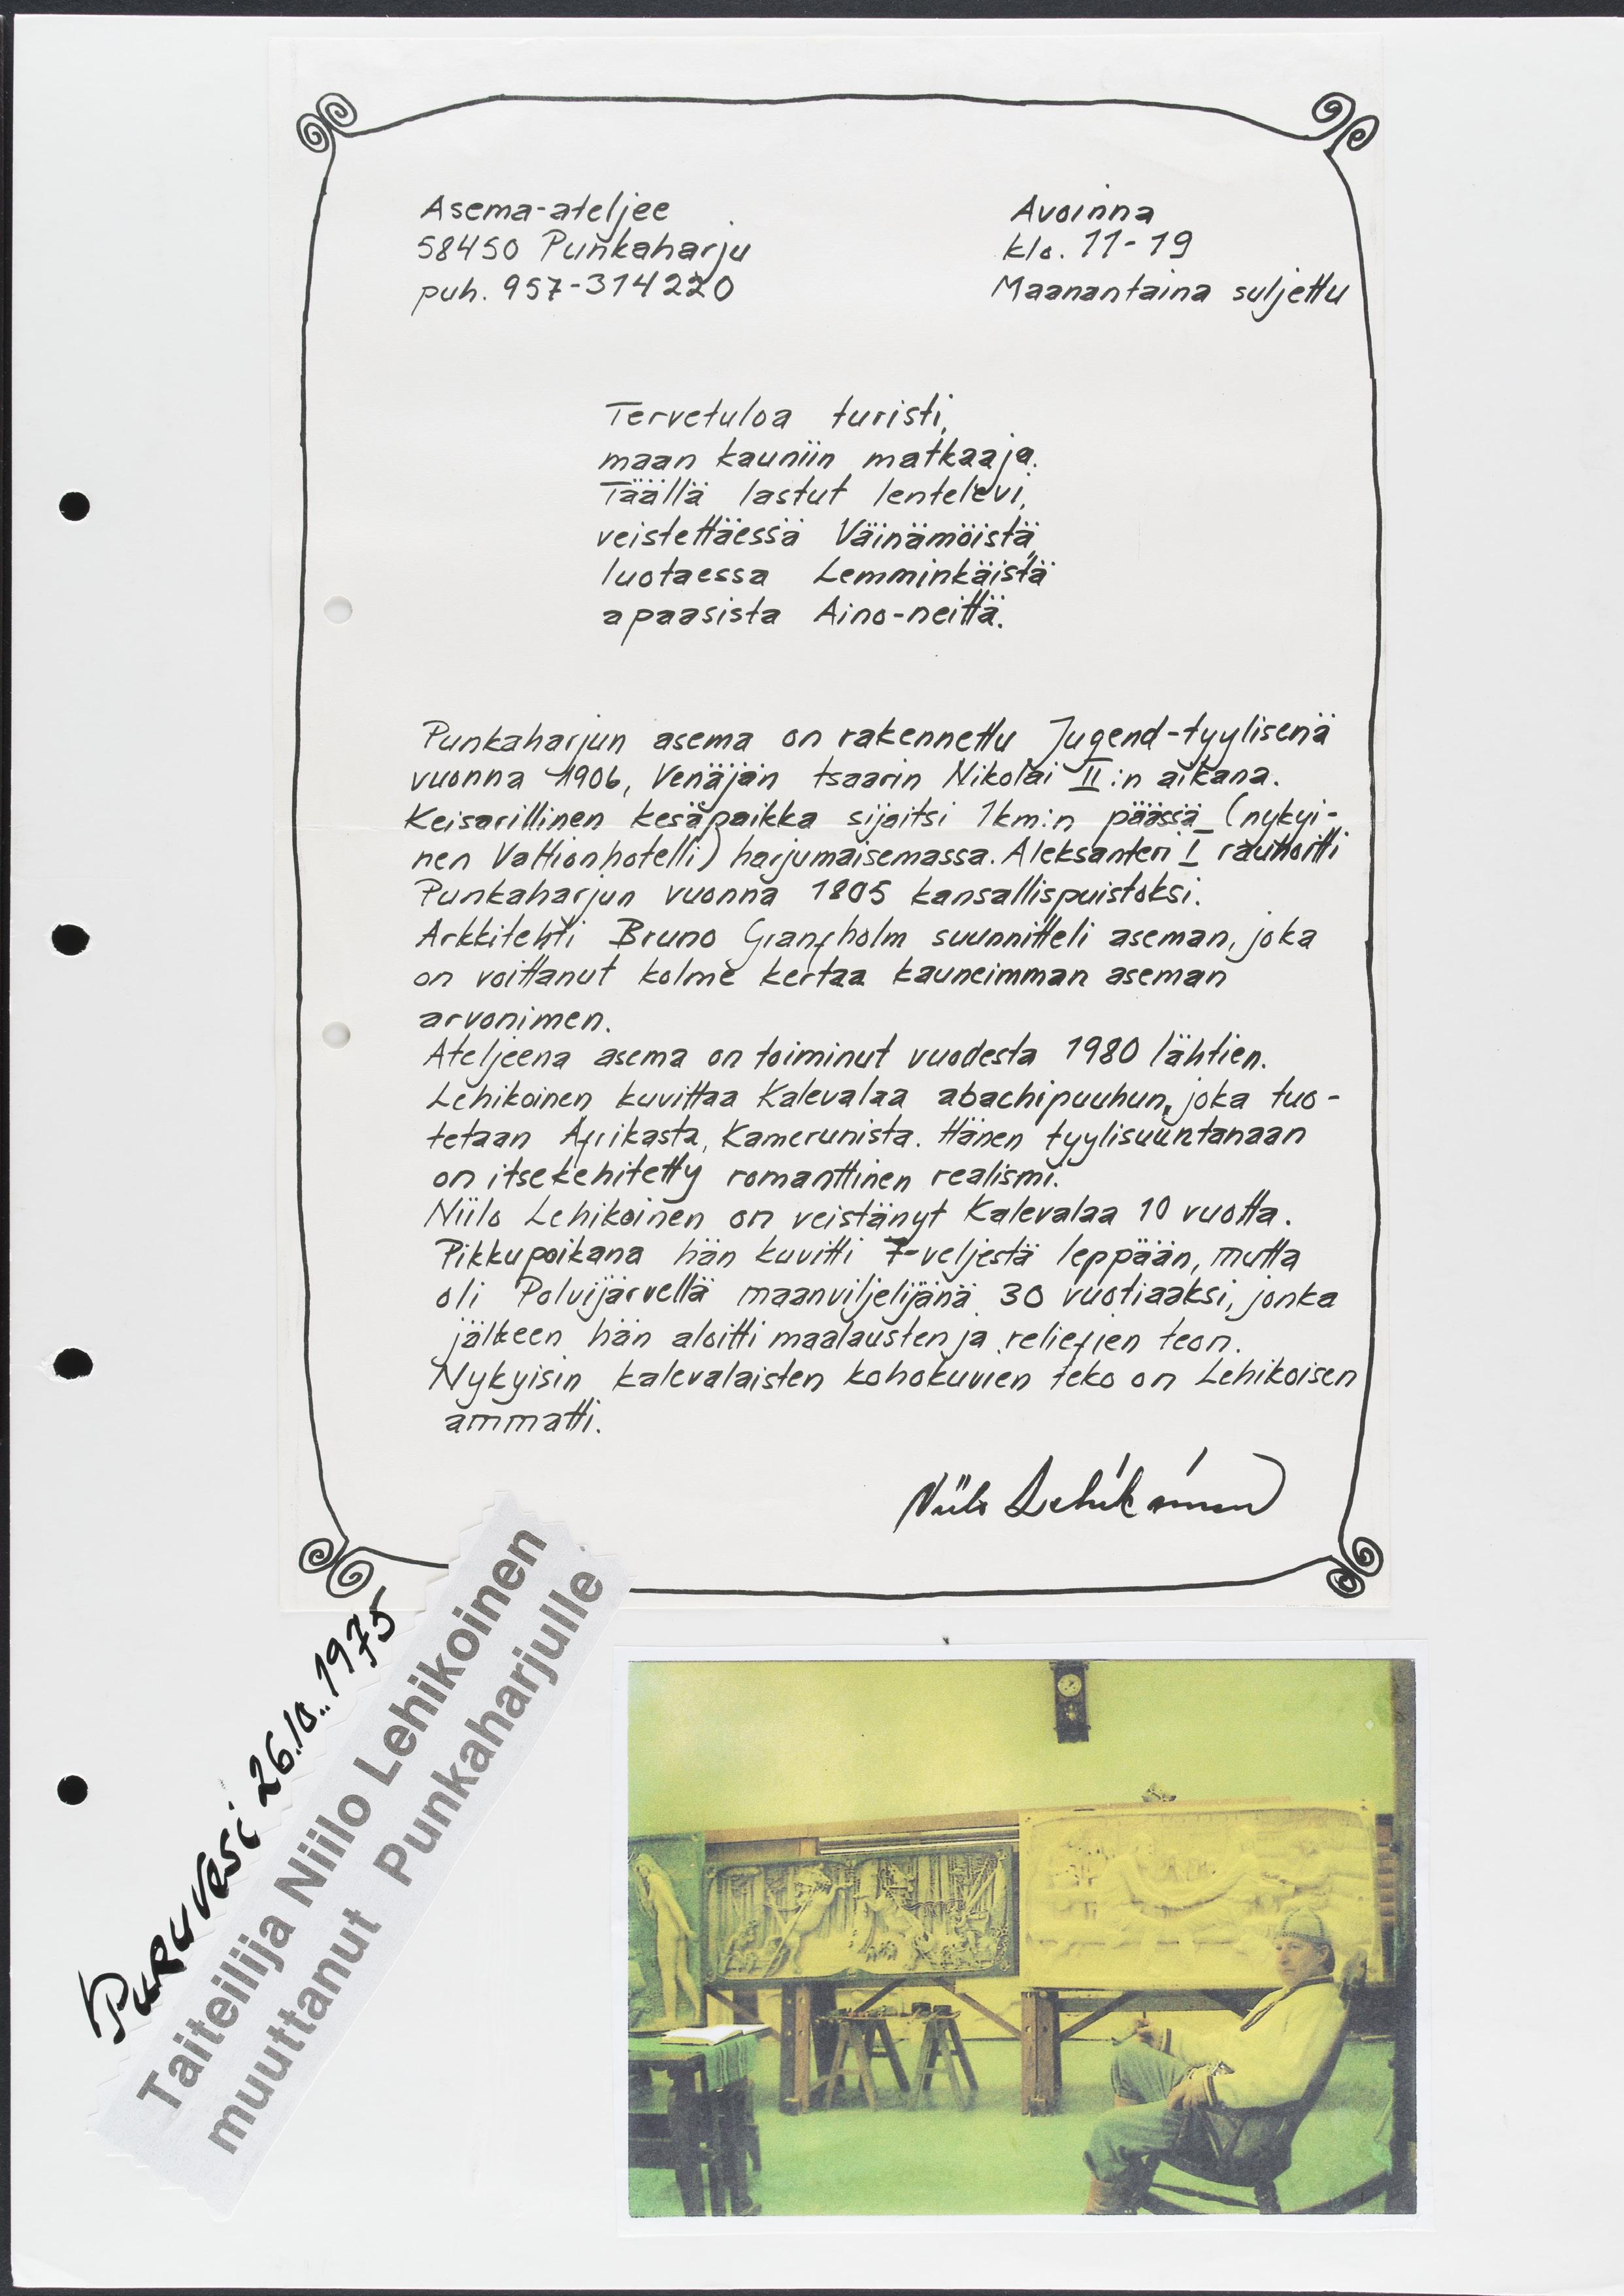 Asema-ateljee
58450 Punkaharju
puh. 957-314220
Avoinna
klo. 11-19
Maanantaina suljettu
Tervetuloa turisti,
maan kauniin matkaaja.
Täällä lastut lentelevi,
veistettäessä Väinämöistä,
luotaessa Lemminkäistä
apaasista Aino-neittä.
Punkaharjun asema on rakennettu Jugend-tyylisenä
vuonna 1906, Venäjän tsaarin Nikolai II:n aikana.
Keisarillinen kesäpaikka sijaitsi 1km:n päässä (nykyi-
nen Valtionhotelli) harjumaisemassa. Aleksanteri I rauhoitti
Punkaharjun vuonna 1805 kansallispuistoksi.
Arkkitehti Bruno Granfholm suunnitteli aseman, joka
on voittanut kolme kertaa kauneimman aseman
arvonimen.
Ateljeena asema on toiminut vuodesta 1980 lähtien.
Lehikoinen kuvittaa Kalevalaa abachipuuhun, joka tuo-
tetaan Afrikasta, Kamerunista. Hänen tyylisuuntanaan
on itsekehitetty romanttinen realismi.
Niilo Lehikoinen on veistänyt Kalevalaa 10 vuotta.
Pikkupoikana hän kuvitti 7-veljestä leppään, mutta
oli Polvijärvellä maanviljelijänä 30 vuotiaaksi, jonka
jälkeen hän aloitti maalausten ja reliefien teon.
Nykyisin kalevalaisten kohokuvien teko on Lehikoisen
ammatti.
Niilo Lehikoinen
Puruvesi 26.10.. 1975
Taiteilija Niilo Lehikoinen
muuttanut Punkaharjulle